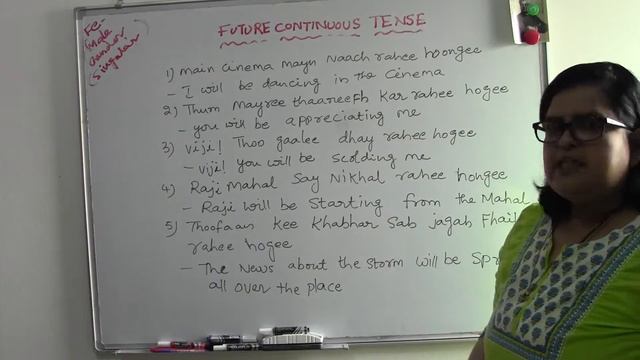 FUTURE CONTINUOUS TENSE
Fe-
male
Gender
Singular
1) Main cinema mayn Naach rahee hoongee
- I will be dancing in the Cinema
2) Thum Mayree thaareefh kar rahee hogee
- you will be appreciating me
3) Viji! Thoo gaalee dhay rahee hogee
- Viji! you will be scolding me
4) Raji Mahal Say Nikhal rahee hongee
- Raji will be Starting from the Mahal
5) Thoofaan kee khabhar Sab jagah Fhail
rahee hogee
- The News about the storm will be Spr
all over the place